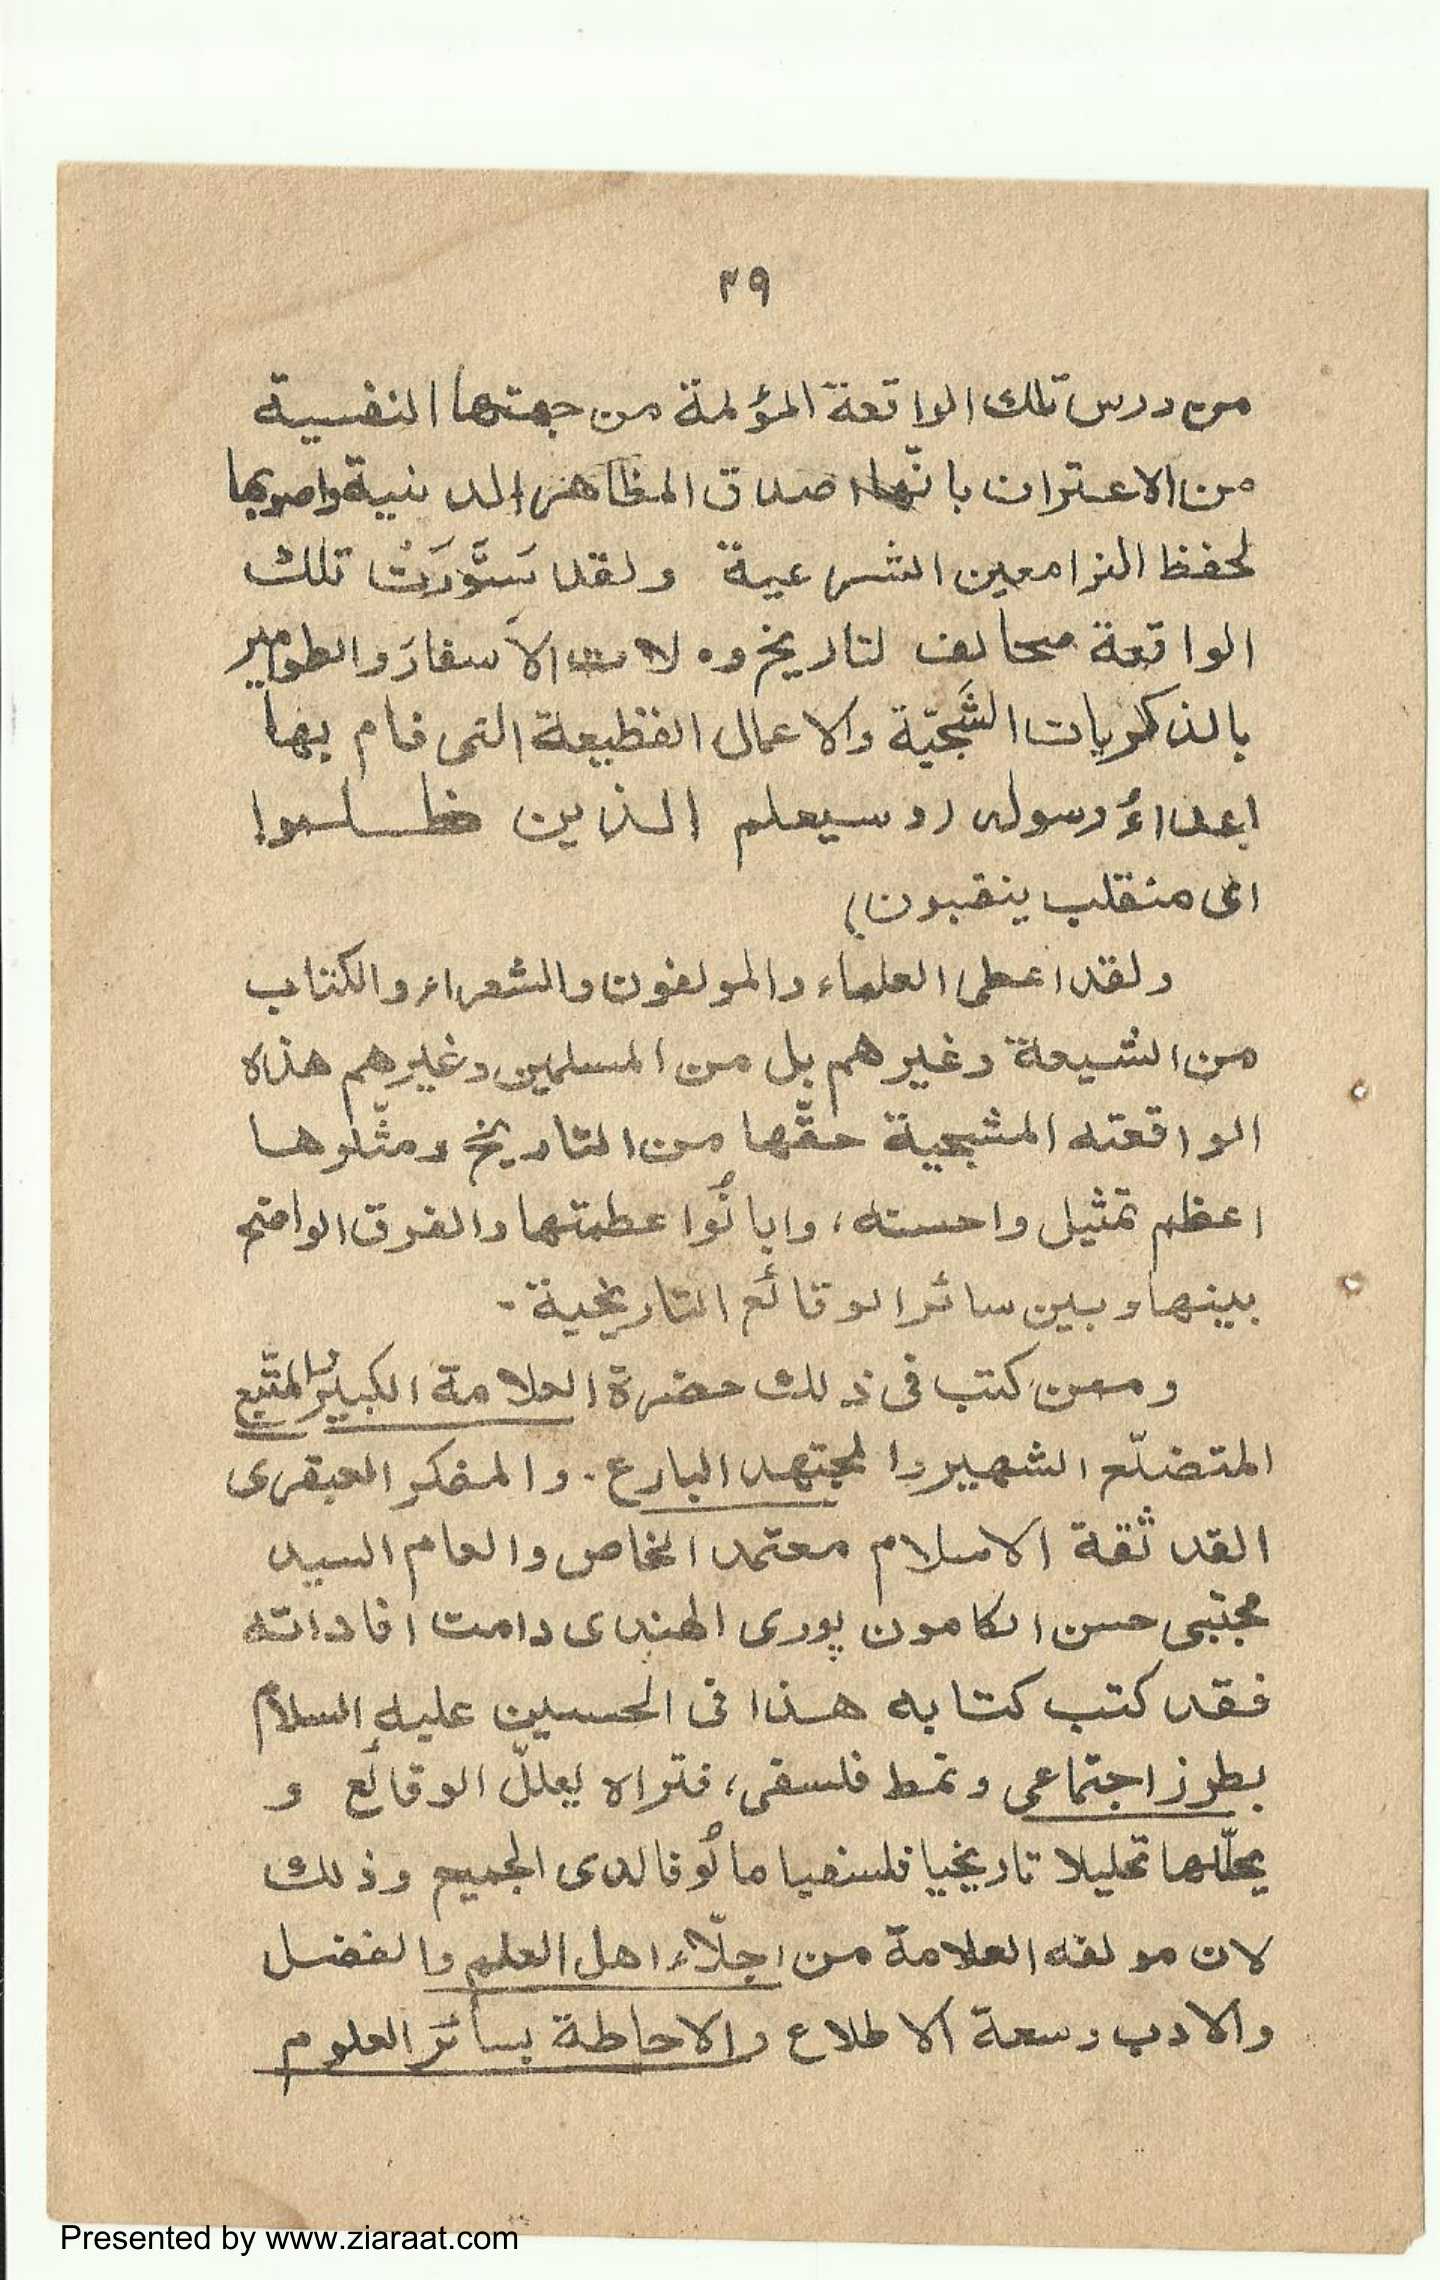 ٣٩
من درس تلك الواقعة المؤلمة من جهتها النفسية
من الاعتران بانّها اصدق المظاهر الدينية واصوبها
لحفظ النواميس الشرعية ولقد سَوَّرَتْ تلك
الواقعة صحائف لتاريخ و الأسفارَ والطوامير
بالذكريات الشَجيّة والاعمال الفظيعة التى قام بها
اعداءُ رسوله (وسيعلم الذين ظلموا
اى منقلب ينقبون)
ولقد اعطى العلماء والمولفون والشعراء والكتاب
من الشيعة وغيرهم بل من المسلمين وغيرهم هذه
الواقعته المشجية حقّها من التاريخ ومثّلوها
اعظم تمثيل واحسنه، وابانُوا عظمتها والفرق الواضح
بينها وبين سائر الوقائع التاريخية -
وممن كتب فى ذلك حضرة العلامة الكبير المتتبع
المتضلّع الشهير والمجتهد البارع - والمفكر العبقرى
القد ثقة الاسلام معتمد الخاص والعام السيد
مجتبى حسن الكامون پورى الهندى دامت افاداته
فقد كتب كتابه هذا فى الحسين عليه السلام
بطرز اجتماعى ونمط فلسفى، فتراه يعللّ الوقائع و
يحلّلها تحليلا تاريخيا فلسفيا مالُوفا لدى الجميع وذلك
لان مولفه العلامة من اجلّاء اهل العلم والفضل
والادب وسعة الاطلاع والاحاطة بسائر العلوم
Presented by www.ziaraat.com